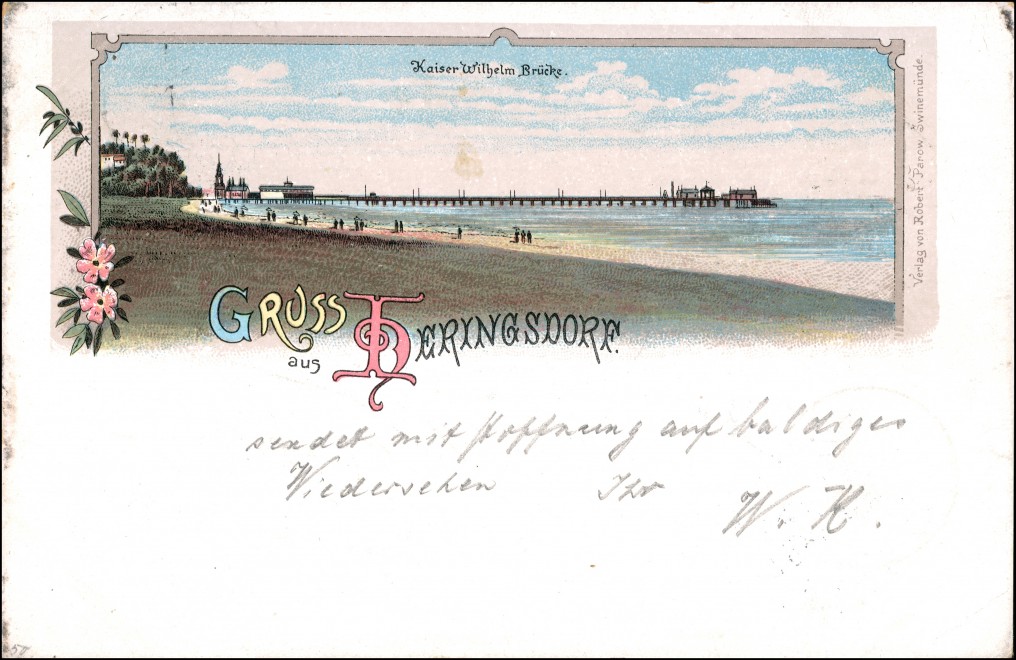 Kaiser Wilhelm Brücke.
Verlag von Robert Parow, Swinemünde.
GRUSS
aus HERINGSDORF.
sendet mit Hoffnung auf baldiges
Wiedersehen Ihr
W. K.
50